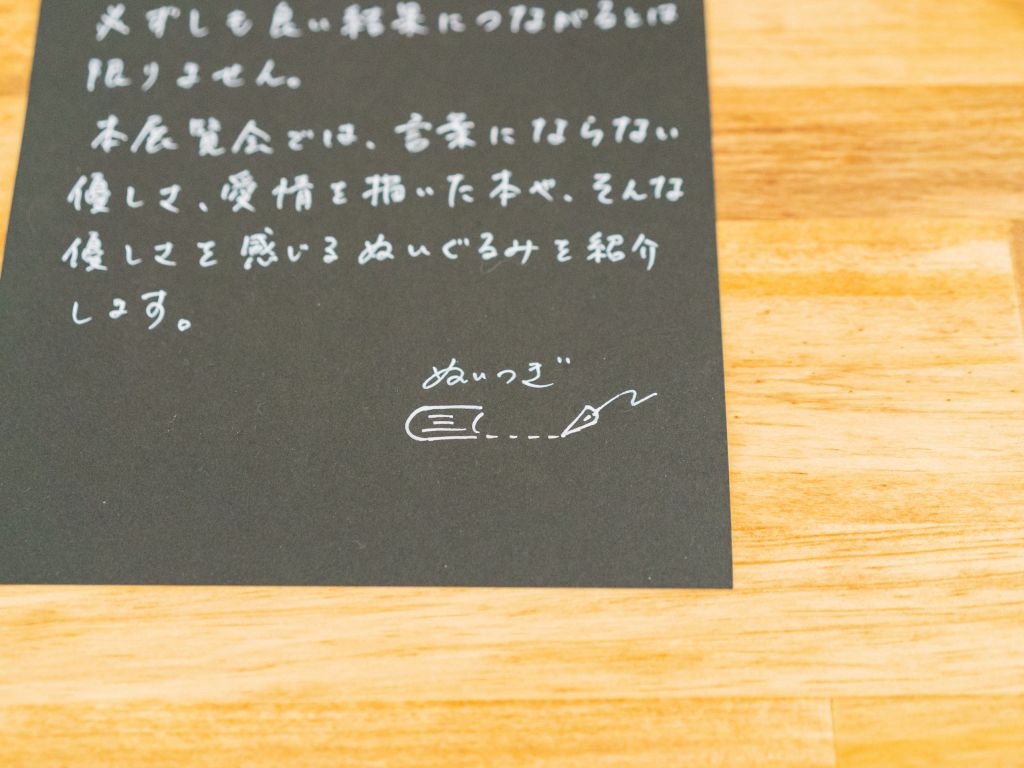 必ずしも良い結果につながるとは
限りません。
本展覧会では、言葉にならない
優しさ、愛情を描いた本や、そんな
優しさを感じるぬいぐるみを紹介
します。
ぬいつぎ